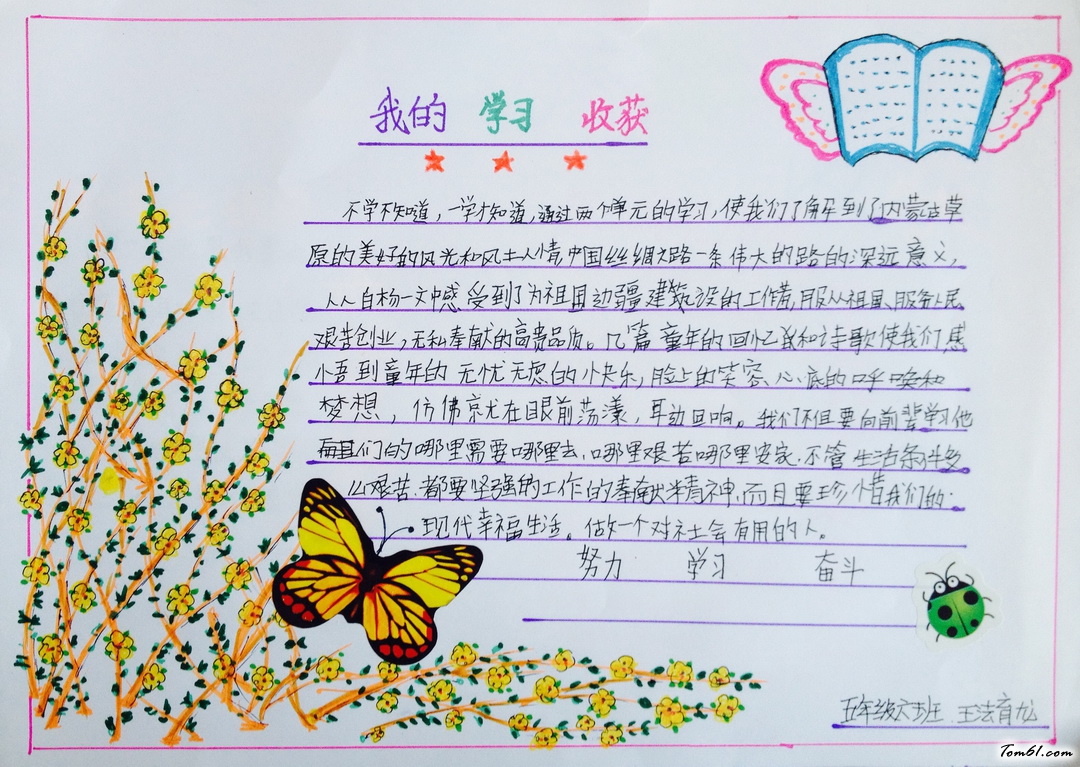 我的 学习 收获
不学不知道，一学才知道，通过两个单元的学习，使我们了解到了内蒙古草
原的美好的风光和风土人情，中国丝绸之路一条伟大的路的深远意义，
从白杨一文中感受到了为祖国边疆建筑设的工作者，服从祖国、服务人民
艰苦创业，无私奉献的高贵品质。几篇童年的回忆和诗歌使我们感
悟到童年的无忧无虑的快乐，脸上的笑容、心底的呼唤和
梦想，仿佛就在眼前荡漾，耳边回响。我们不但要向前辈学习他
们的哪里需要哪里去，哪里艰苦哪里安家，不管生活条件多
么艰苦，都要坚强的工作的奉献精神，而且要珍惜我们的
现代幸福生活。做一个对社会有用的人。
努力 学习 奋斗
五年级六班 王法育
Tom61.com